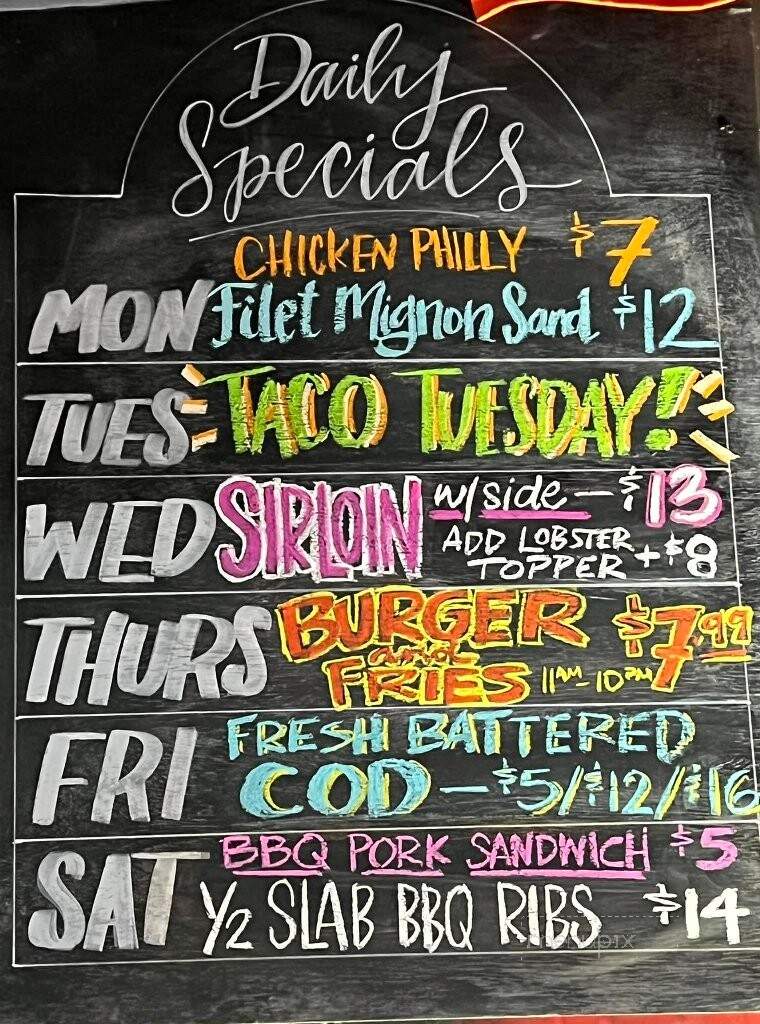 Daily
Specials
CHICKEN PHILLY $7
MON Filet Mignon Sand $12
TUES TACO TUESDAY!
WED SIRLOIN w/side - $13
ADD LOBSTER
TOPPER + $8
THURS BURGER $7.99
and
FRIES 11AM-10PM
FRI FRESH BATTERED
COD - $5/$12/$16
SAT BBQ PORK SANDWICH $5
1/2 SLAB BBQ RIBS $14